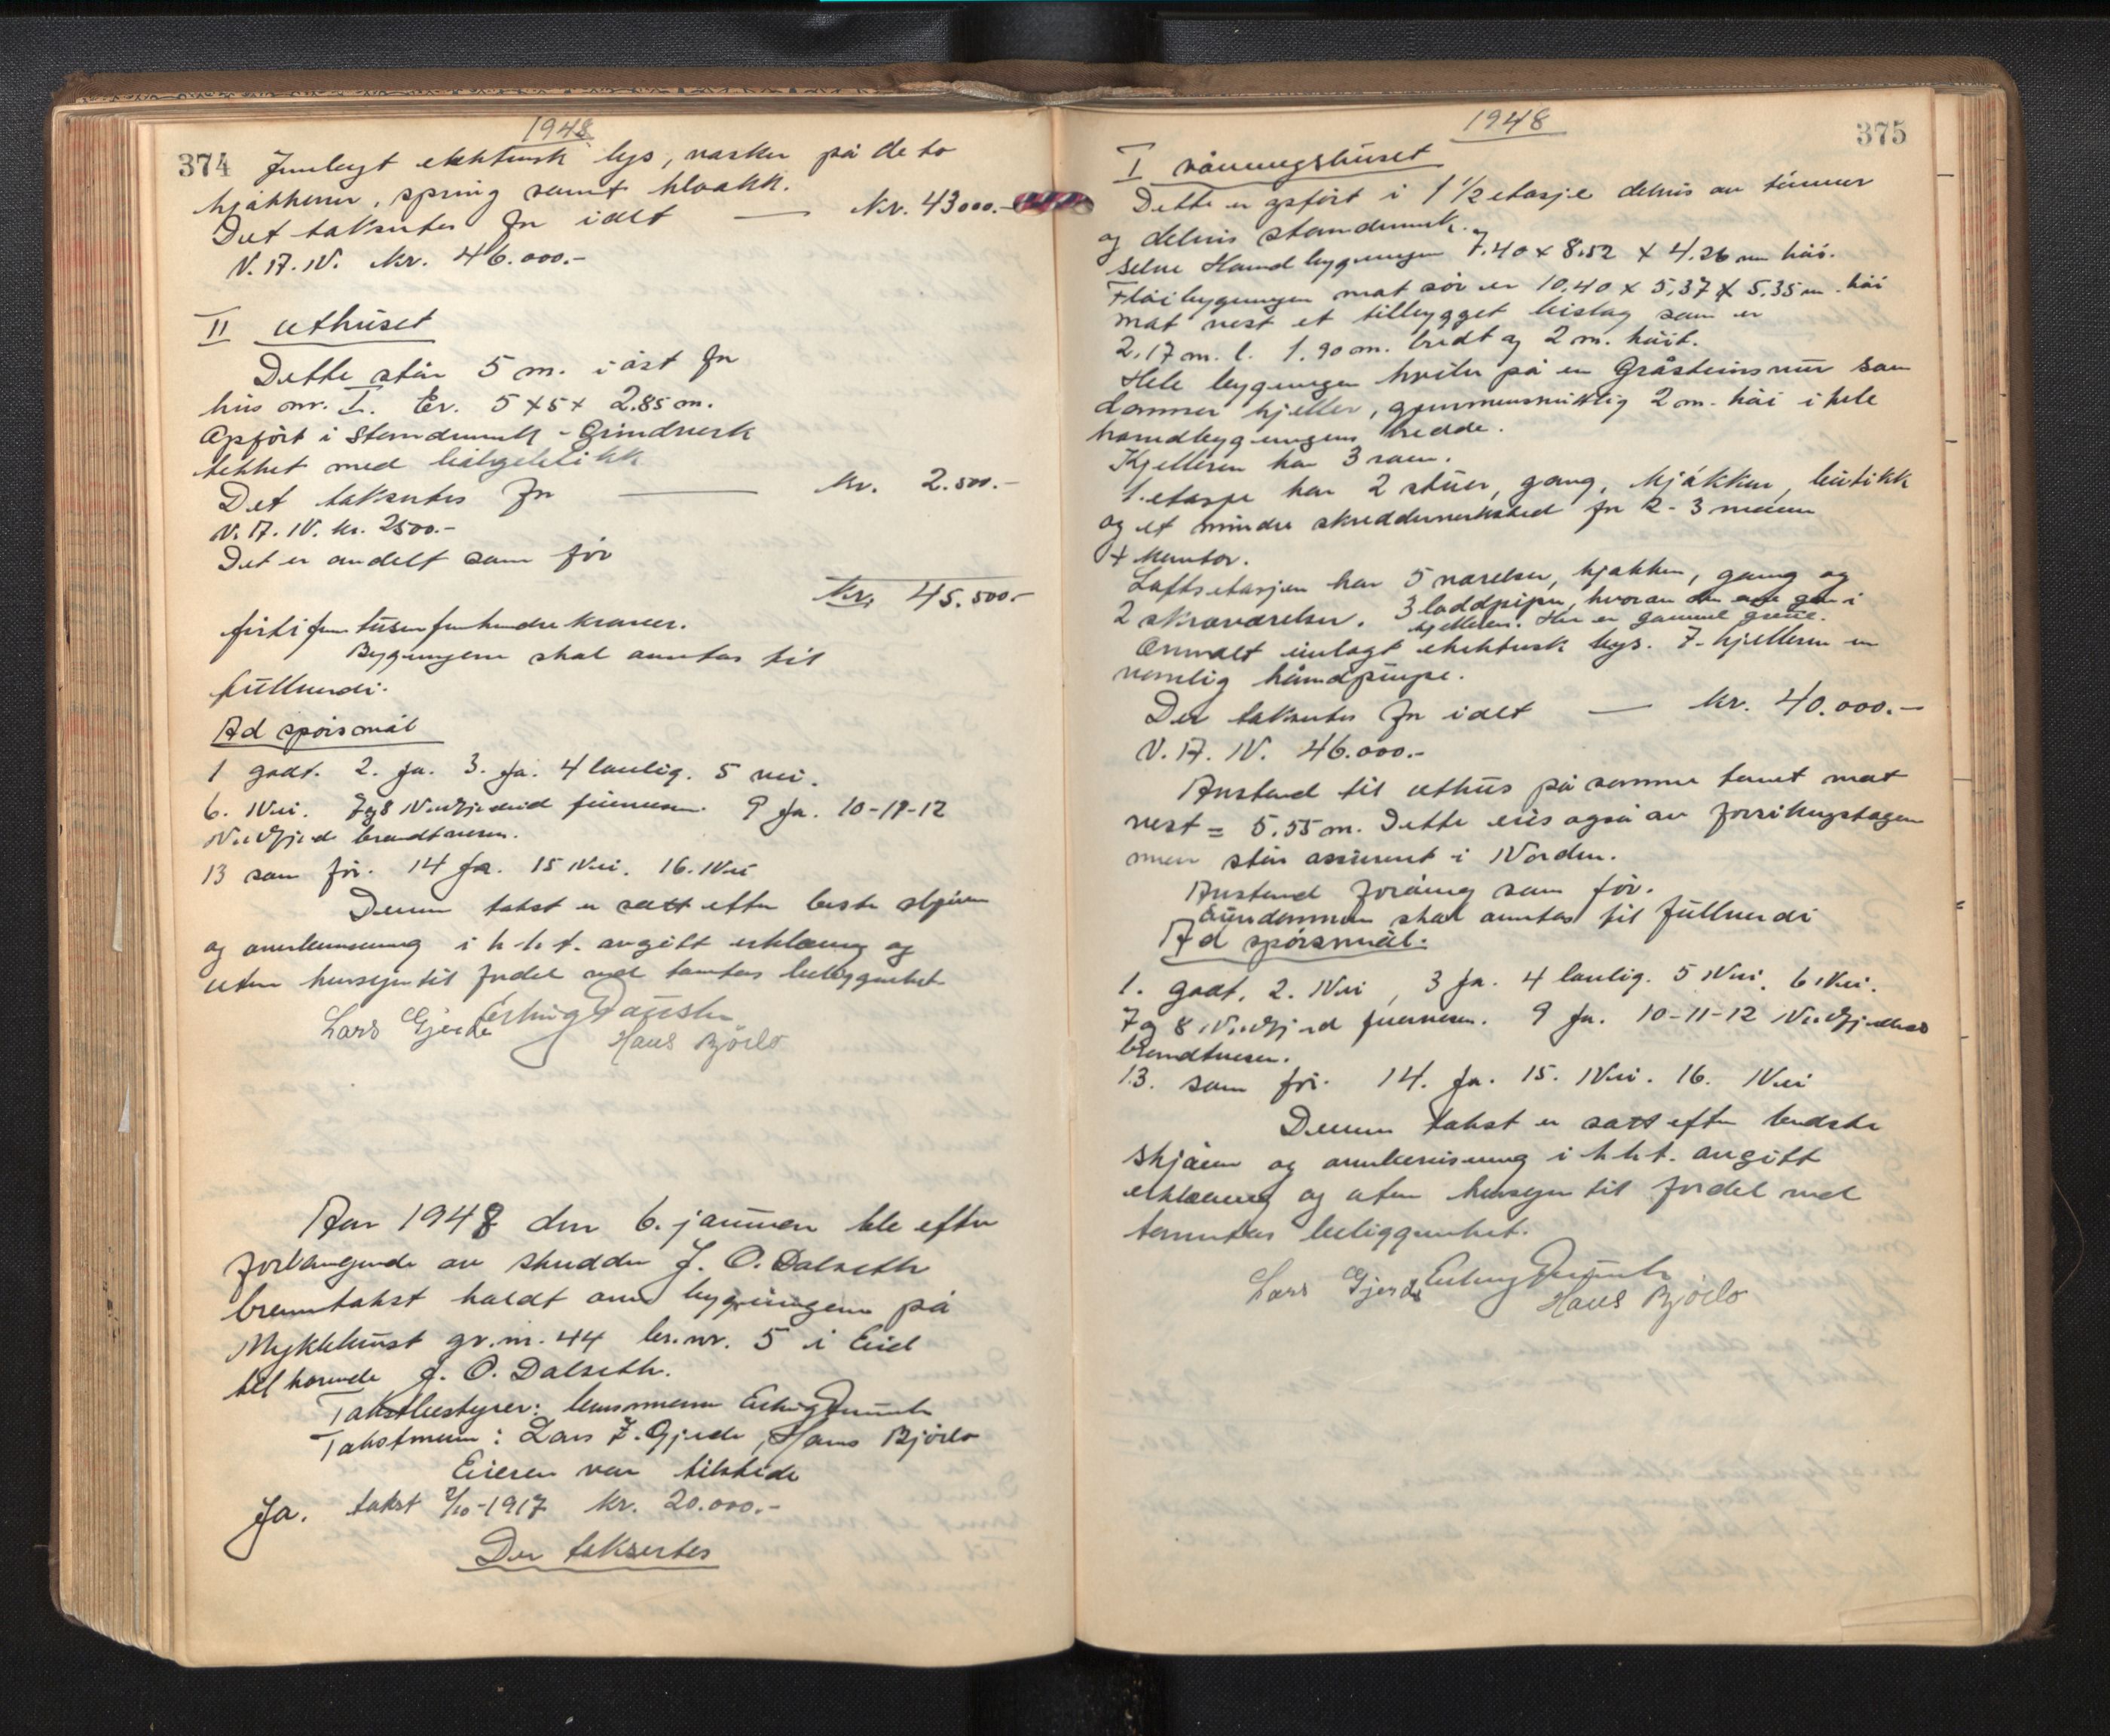 1948
374 Innlagt elektrisk lys, vasker på de to
kjøkkener, spring samt kloakk.
Det takseres for ialt — Kr. 43000.-
V. 17. IV. Kr. 46.000.-
II uthuset
Dette står 5 m. i øst for
hus nr. I. Er. 5 x 5 x 2.85 m.
Opført i Stenderverk - Grindverk
tekket med bølgeblikk
Det takseres for — kr. 2.500.-
V. 17. IV. kr. 2500.-
Det er andelt som før
Kr. 45.500.-
førti fem tusen fem hundre kroner.
Bygningene skal ansettes til
fullverdi.
Ad spørsmål
1 godt. 2. Ja. 3. Ja. 4 lovlig. 5 nei.
6. Nei. 7 og 8 Nordfjordeid fiernesen. 9 Ja. 10-11-12
Nordfjordeid brandvesen.
13 som før. 14 Ja. 15 Nei. 16. Nei
Denne takst er satt efter beste skjønn
og overbevisning i h.h.t. avgitt erklæring og
uten hensyn til fordel ved tomtens beliggenhet
Lars Gjerde Erling
Hans Bjørlo
Aar 1948 den 6. januar ble efter
forlangende av skredder J. O. Dalseth
branntakst holdt over bygningene på
Myklebust gr.nr. 44 br.nr. 5 i Eid
tilhørende J. O. Dalseth.
Takstbestyrer: lensmann Erling
Takstmenn: Lars J. Gjerde, Hans Bjørlo
Eieren var tilstede
Ja. takst 2/10-1917 kr. 20.000.-
Der takseres
1948
375
I våningshuset
Dette er opført i 1 1/2 etasje delvis av tømmer
og delvis stenderverk.
Selve Hovedbygningen 7.40 x 8.52 x 4.26 m høi.
Fløibygningen mot sør er 10.40 x 5.37 x 5.35 m. høi
mot vest et tilbygget bislag som er
2.17 m. l. 1.90 m. bredt og 2 m. høit.
Hele bygningen hviler på en Gråsteinsmur som
danner kjeller, gjennemsnittlig 2 m. høi i hele
hovedbygningens bredde.
Kjelleren har 3 rom.
1. etasje har 2 stuer, gang, kjøkken, butikk
og et mindre skredderverksted for 2-3 mann
+ kontor.
Loftsetasjen har 5 værelser, kjøkken, gang og
2 skråværelser. 3 loddpiper, hvorav den ene går i
kjelleren. Her er gammel grue.
Overalt innlagt elektrisk lys. I kjelleren er
vanlig håndpumpe.
Der takseres for ialt — kr. 40.000.-
V. 17. IV. 46.000.-
Avstand til uthus på samme tomt mot
vest = 5.55 m. Dette eies også av forsikringstageren
men står assurert i Norden.
Avstand forøvrig som før.
Eiendommen skal ansettes til fullverdi
Ad spørsmål.
1. godt. 2. Nei, 3 Ja. 4 lovlig. 5 Nei. 6 Nei.
7 og 8 Nordfjord fiernesen. 9 Ja. 10-11-12 Nordfjordeid
brandvesen.
13. som før. 14. Ja. 15. Nei. 16. Nei
Denne takst er satt efter bedste
skjønn og overbevisning i h.h.t. avgitt
erklæring og uten hensyn til fordel ved
tomtens beliggenhet.
Lars Gjerde Erling
Hans Bjørlo